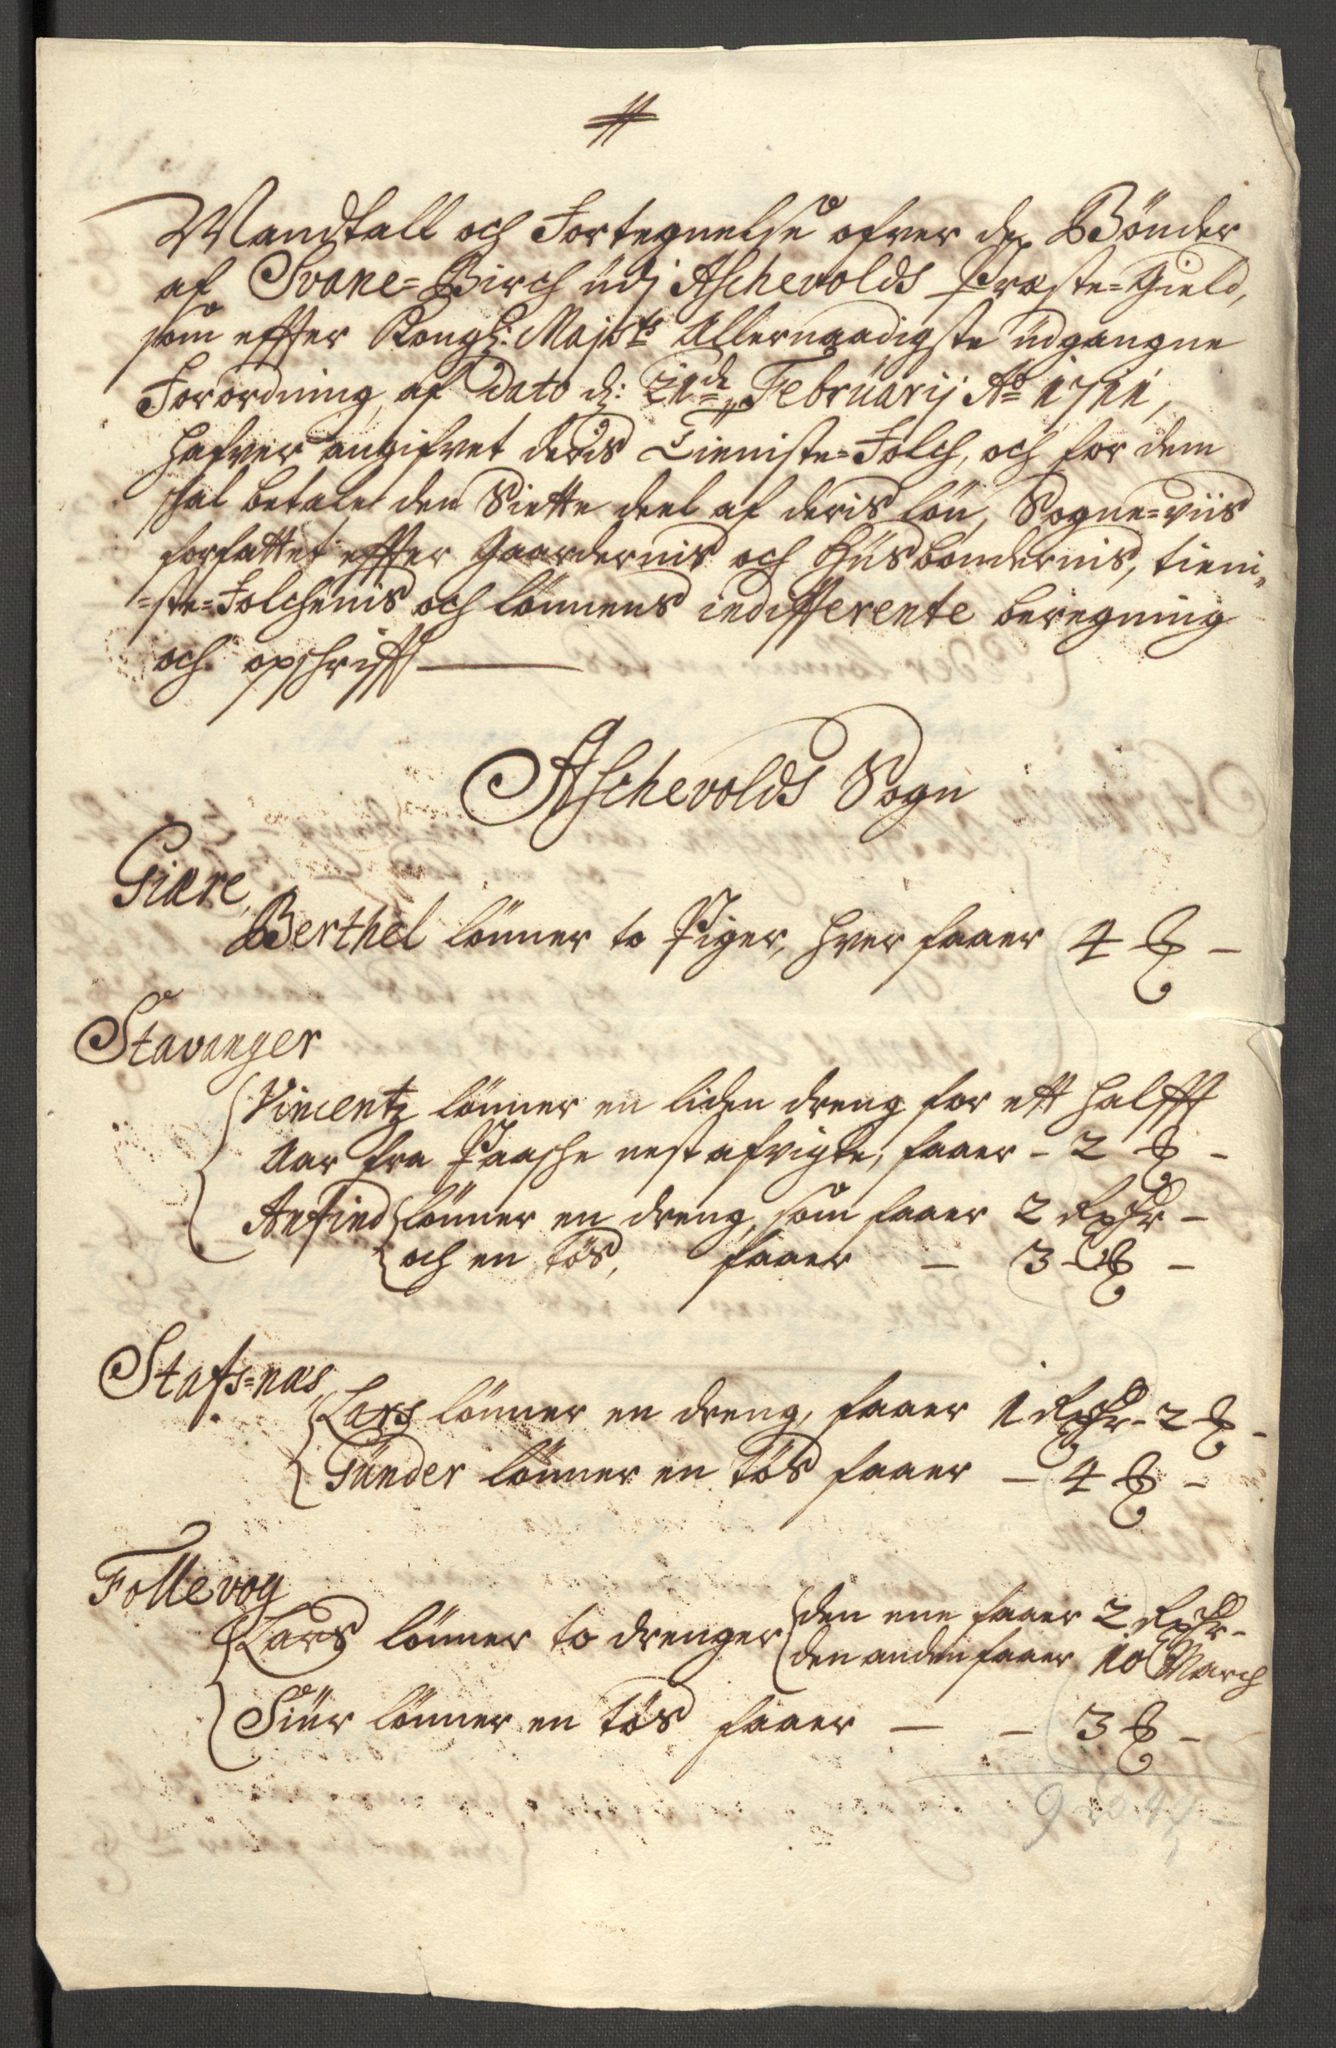 Mandtall och Fortegnelse ofver de Bönder
af Svane=Birch udj Aschevolds Præste=Gield,
som effter Kongl: Majsts Allernaadigste udgangne
Forordning, af Dato d: 21de Februarij Ao 1711,
hafver angifvet deris Tieniste=Folch, och for dem
schal betale den Siette deel af deris lön, Sogne=viis
forfattet effter Gaardernis och Husbondernis, tieni=
=ste=Folchenis och lönnens indifferente beregning
och opschrifft
Aschevolds Sogn
Giære,
Berthel lönner to Piger, hver faaer 4 ß –
Stavanger
Vincentz lönner en liden dreng for ett halfft
Aar fra Paasche nest afvigte, faaer – 2 ß –
Anfind lönner en dreng, som faaer 2 Rdr –
och en tös, faaer – 3 ß –
Stafs=næs
Lars lönner en dreng, faaer 1 Rdr – 2 ß –
Gunder lönner en tös faaer – 4 ß –
Follevog
Lars lönner to drenger den ene faaer 2 Rdr –
den anden faaer 10 March
Siur lönner en tös faaer – – 3 ß –